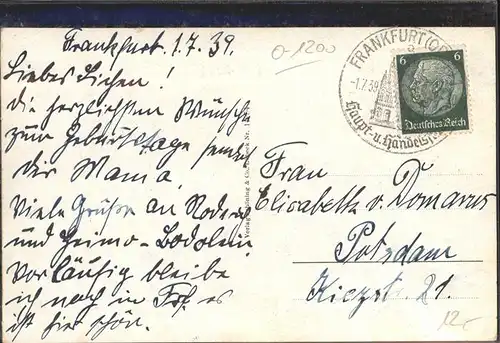 Frankfurt. 1.7.39.
0-1200
Liebes Lischen!
die herzlichsten Wünsche
zum Geburtstage
der Mama.
Viele Grüße an
und Heimo-Bodolein
Vorläufig bleibe
ich noch in Frf. es
ist hier schön.
FRANKFURT (OD
-1.7.39
Haupt- u. Handelsst
6 6
Deutsches Reich
Frau
Elisabeth v. Domarus
Potsdam
Kiezstr. 21.
12,-